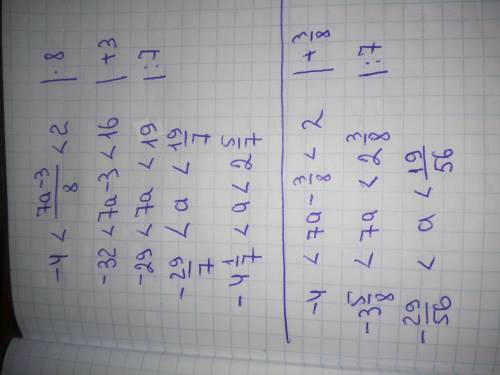 -4 < \frac{7a-3}{8} < 2 |·8
-32 < 7a-3 < 16 |+3
-29 < 7a < 19 |:7
-\frac{29}{7} < a < \frac{19}{7}
-4\frac{1}{7} < a < 2\frac{5}{7}
-4 < 7a-\frac{3}{8} < 2 |+\frac{3}{8}
-3\frac{5}{8} < 7a < 2\frac{3}{8} |:7
-\frac{29}{56} < a < \frac{19}{56}